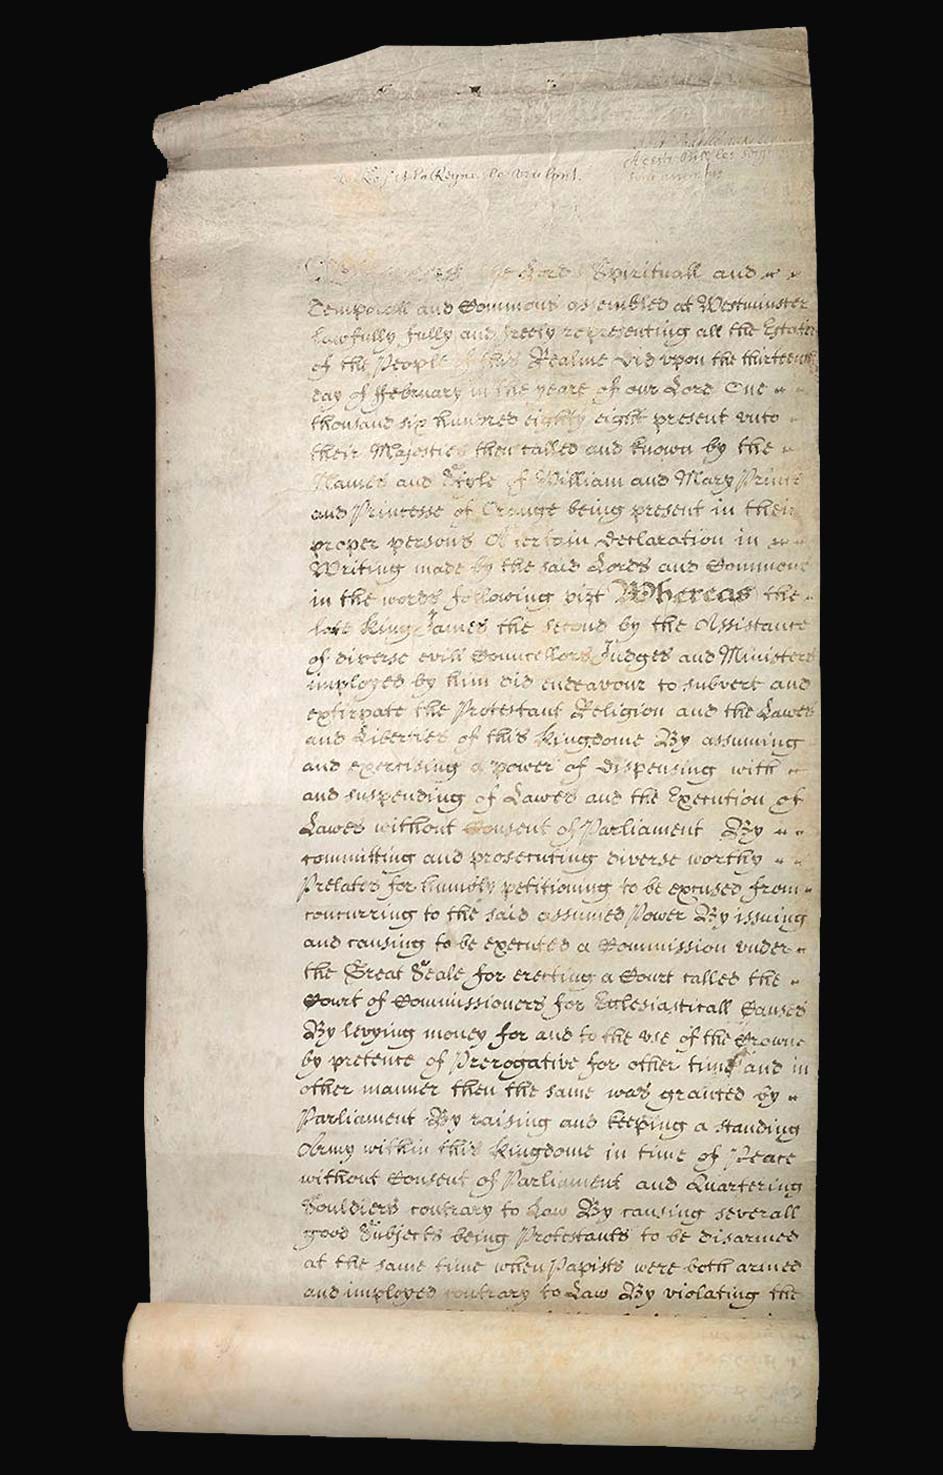 Le Roy & la Reyne le veulent.
Spirituall and
Temporall and Commons assembled at Westminster
lawfully fully and freely representing all the Estates
of the People of this Realme did upon the thirteenth
day of ffebruary in the yeare of our Lord One
thousand six hundred eighty eight present unto
their Majesties then called and known by the
Names and Style of William and Mary Prince
and Princesse of Orange being present in their
proper persons A certain Declaration in
Writing made by the said Lords and Commons
in the words following vizt Whereas the
late King James the second by the Assistance
of diverse evill Councellors Judges and Ministers
imployed by him did endeavour to subvert and
extirpate the Protestant Religion and the Lawes
and Liberties of this Kingdome By assuming
and exercising a power of dispensing with
and suspending of Lawes and the Execution of
Lawes without Consent of Parliament By
committing and prosecuting diverse worthy
Prelates for humbly petitioning to be excused from
concurring to the said assumed Power By issuing
and causing to be executed a Commission under
the Great Seale for erecting a Court called the
Court of Commissioners for Ecclesiasticall Causes
By levying money for and to the use of the Crowne
by pretence of Prerogative for other time and in
other manner then the same was granted by
Parliament By raising and keeping a standing
Army within this Kingdome in time of Peace
without Consent of Parliament and Quartering
Souldiers contrary to Law By causing severall
good Subjects being Protestants to be disarmed
at the same time when Papists were both armed
and imployed contrary to Law By violating the